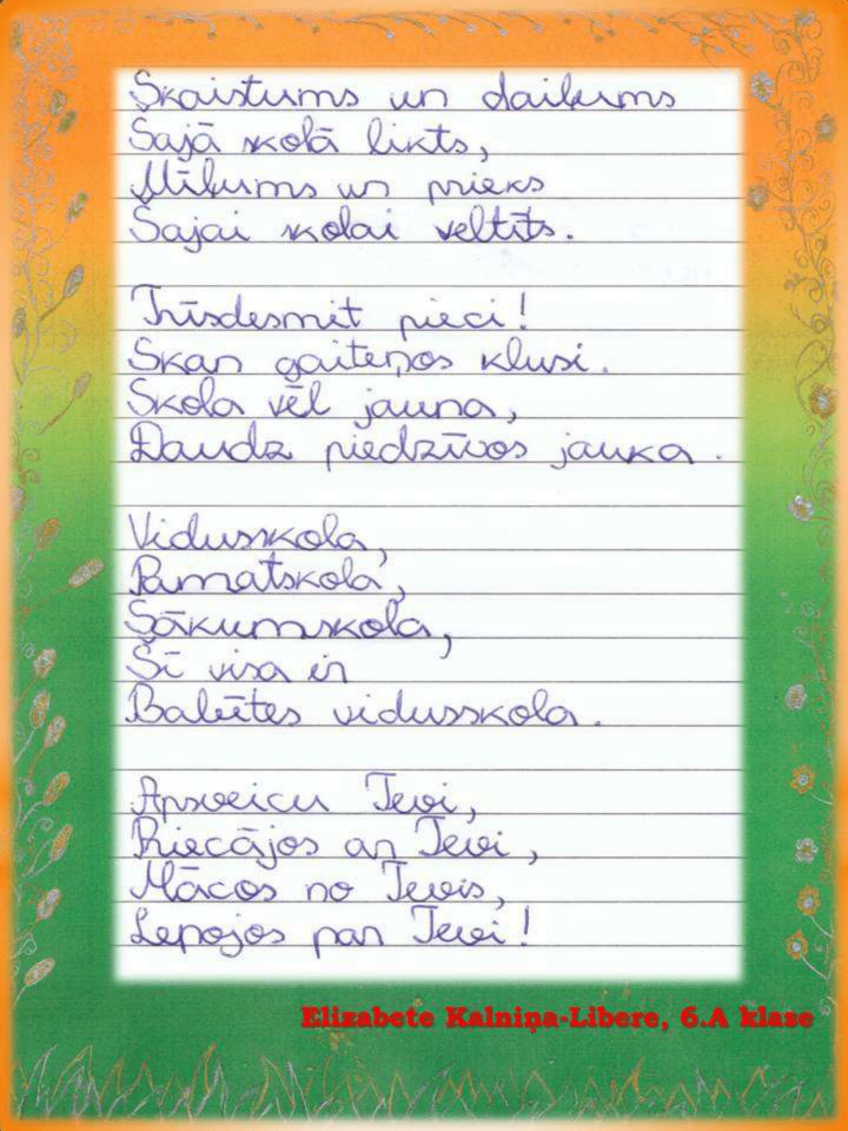 Skaistums un daiļums
Šajā skolā likts,
Mīļums un prieks
Šajai skolai veltīts.
Trīsdesmit pieci!
Skan gaiteņos klusi.
Skola vēl jauna,
Daudz piedzīvos jauka.
Vidusskola,
Pamatskola,
Sākumskola,
Šī visa ir
Babītes vidusskola.
Apsveicu Tevi,
Priecājos ar Tevi,
Mācos no Tevis,
Lepojos par Tevi!
Elizabete Kalniņa-Lībere, 6.A klase